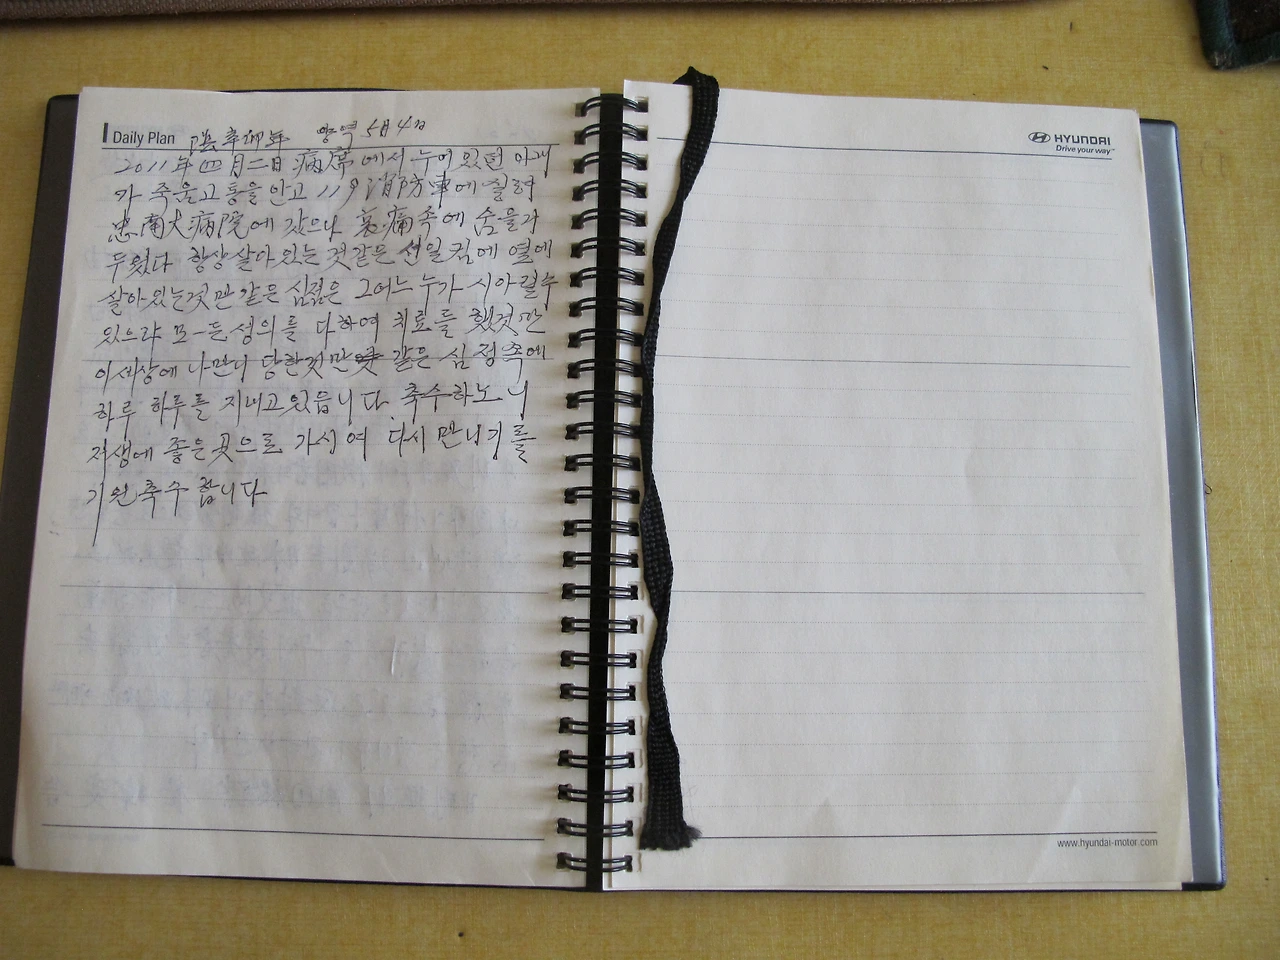 Daily Plan 陰辛卯年 양력 5月 4日
2011年 四月二日 病席에서 누어있던 아내
가 죽움고통을 안고 119消防車에 실려
忠南大病院에 갔으나 哀痛속에 숨을거
두웠다 항상 살아있는 것같은 선일 컴에 열에
살아있는것만 같은 심정은 그어느 누가 시아릴수
있으랴 모-든 성의를 다하여 치료를 했것만
이세상에 나만니 당한것만 같은 심정속에
하루 하루를 지내고있읍니다 축수하노니
저생에 좋은곳으로 가시여 다시만나기를
기원축수 합니다
HYUNDAI
Drive your way™
www.hyundai-motor.com